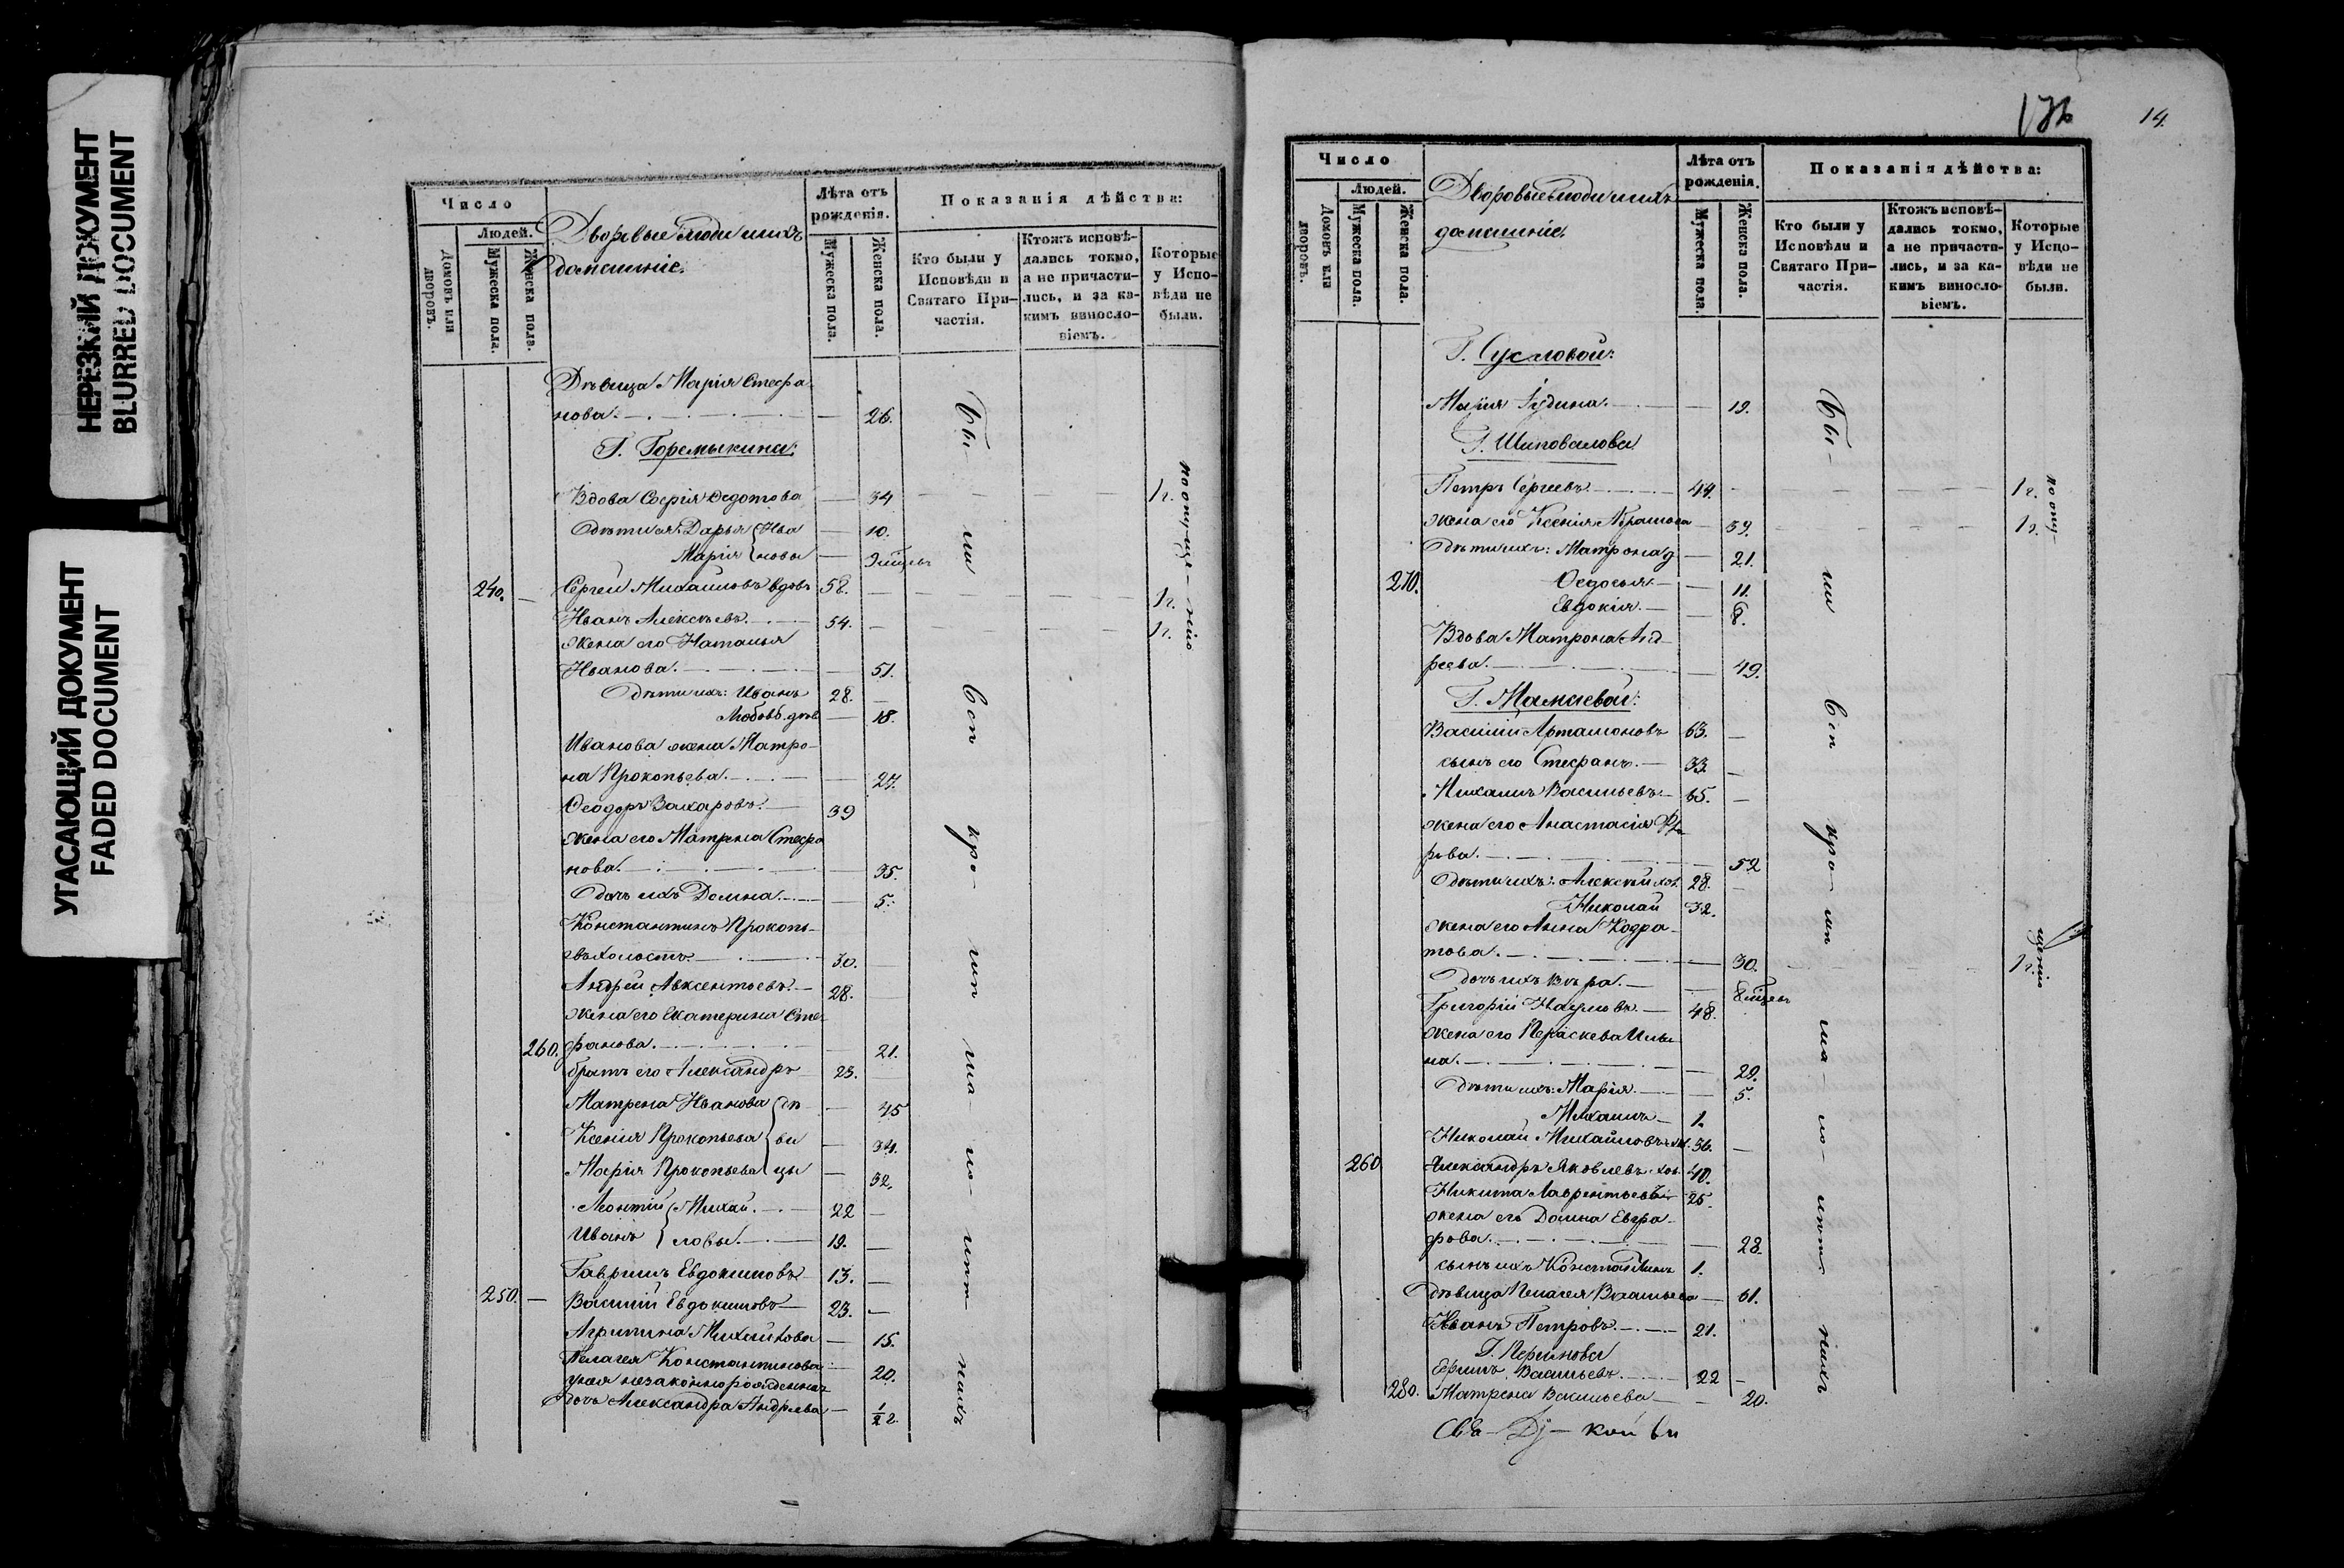 НЕРЕЗКИЙ ДОКУМЕНТ
BLURRED DOCUMENT
УГАСАЮЩИЙ ДОКУМЕНТ
FADED DOCUMENT
Число
Людей.
Домовъ или дворовъ.
Мужеска пола.
Женска пола.
Дворовые люди и ихъ
домашніе.
Лѣта отъ рожденія.
Мужеска пола.
Женска пола.
Показанія дѣйства:
Кто были у Исповѣди и Святаго Причастія.
Ктожъ исповѣдались токмо, а не причастились, и за какимъ винословіемъ.
Которые у Исповѣди не были.
Дѣвица Марія Стефа
нова. 26.
Г. Горемыкина:
Вдова Софія Федотова 34 1 г.
дѣти ея: Дарья Ива 10.
Марія новы
240. Сергей Михайловъ вдовъ 58. 1 г.
Иванъ Алексѣевъ. 54. 1 г.
жена его Наталья
Иванова. 51.
дѣти ихъ: Иванъ 28.
Любовь дѣв 18.
Иванова жена Матро-
на Прокопьева. 27.
Феодоръ Захаровъ. 39
жена его Матрена Стефа
нова. 35.
дочь ихъ Домна. 5.
Константинъ Прокопь-
евъ холостъ. 30.
Андрей Авксентьевъ. 28.
жена его Екатерина Сте-
260. фанова. 21.
братъ его Александръ 23.
Матрена Иванова дѣ 45
Ксенія Прокопьева ви 34.
Марія Прокопьева цы 32.
Леонтій Михай. 22
Иванъ ловы. 19.
Гавріилъ Евдокимовъ 13.
250. Василій Евдокимовъ 23.
Агрипина Михайлова 15.
Пелагея Константинова 20.
у нея незаконнорожденная
дочь Александра Андреева 1/2 г.
Бы- ли всп кро- ма- ло- лѣт- нихъ
по опуще- нію
176 14.
Число
Людей.
Домовъ или дворовъ.
Мужеска пола.
Женска пола.
Дворовые люди и ихъ
домашніе.
Лѣта отъ рожденія.
Мужеска пола.
Женска пола.
Показанія дѣйства:
Кто были у Исповѣди и Святаго Причастія.
Ктожъ исповѣдались токмо, а не причастились, и за какимъ винословіемъ.
Которые у Исповѣди не были.
Г. Сусловой:
Марія Іудина. 19.
Г. Шиповалова
Петръ Сергеевъ. 44. 1 г.
жена его Ксенія Абрамова 39. 1 г.
дѣти ихъ: Матрона д 21.
270. Федосья 11.
Евдокія. 8.
Вдова Матрона Анд-
реева. 49.
Г. Мамаевой:
Василій Артамоновъ 63.
сынъ его Стефанъ. 33.
Михаилъ Васильевъ. 65.
жена его Анастасія
52
дѣти ихъ: Алексѣй хол. 28.
Николай 32.
жена его Анна Кодра-
това. 30. 1 г.
дочь ихъ Вѣра.
Григорій Наумовъ. 48.
жена его Параскева Ильи
на. 29.
дѣти ихъ: Марія. 5.
Михаилъ 1.
Николай Михайловъ хол. 56.
260 Александръ Яковлевъ хол. 40.
Никита Лаврентьевъ 25.
жена его Домна Евгра-
фова. 28.
сынъ ихъ Константинъ 1.
дѣвица Пелагея Васильева 61.
Иванъ Петровъ. 21.
Ефимъ Васильевъ. 22
280. Матрена Васильева 20.
Бы- ли всп кро- ма- ло- лѣт- нихъ
по опу- щенію